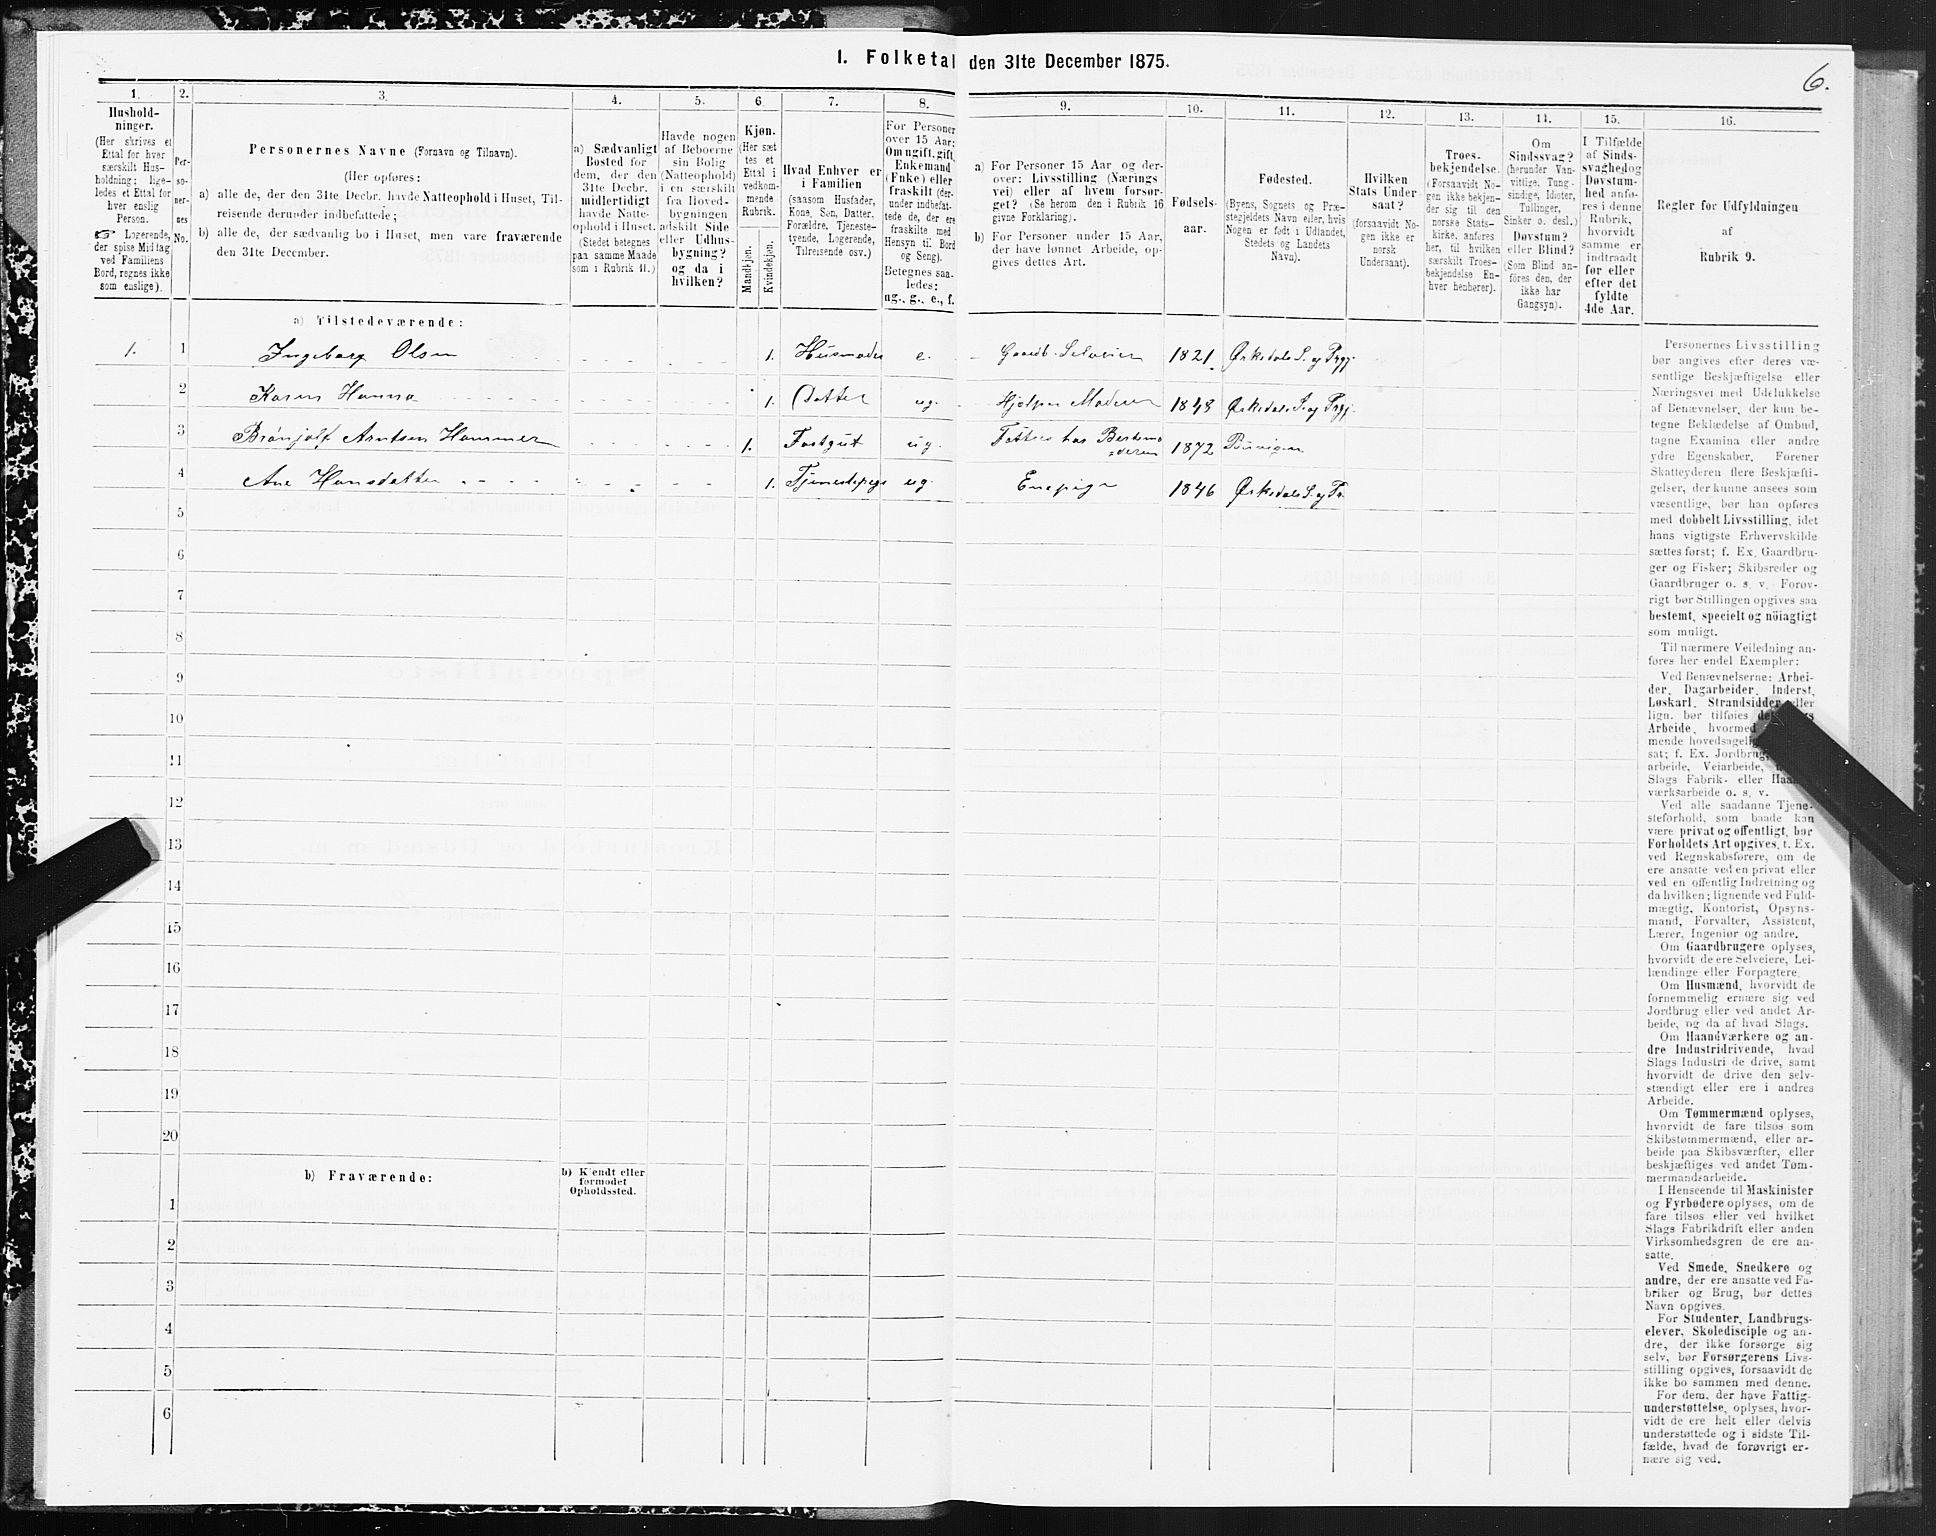 I. Folketal den 31te December 1875.
6.
1.
Hushold-
ninger.
(Her skrives et
Ettal for hver
særskilt Hus-
holdning; lige-
ledes et Ettal for
hver enslig
Person.
☞ Logerende,
der spise Middag
ved Familiens
Bord, regnes ikke
som enslige).
2.
Per-
so-
ner-
nes
No.
3.
Personernes Navne (Fornavn og Tilnavn).
(Her opføres:
a) alle de, der den 31te Decbr. havde Natteophold i Huset, Til-
reisende derunder indbefattede;
b) alle de, der sædvanlig bo i Huset, men vare fraværende
den 31te December.
4.
a) Sædvanligt
Bosted for
dem, der den
31te Decbr.
midlertidigt
havde Natte-
ophold i Huset.
(Stedet betegnes
paa samme Maade
som i Rubrik 11.)
5.
Havde nogen
af Beboerne
sin Bolig
(Natteophold)
i en særskilt
fra Hoved-
bygningen
adskilt Side
eller Udhus-
bygning?
og da i
hvilken?
6
Kjøn.
(Her sæt
tes et
Ettal i
vedkom-
mende
Rubrik.
Mandkjøn.
Kvindekjøn.
7.
Hvad Enhver er
i Familien
(saasom Husfader,
Kone, Søn, Datter,
Forældre, Tjeneste-
tyende, Logerende,
Tilreisende osv.)
8.
For Personer
over 15 Aar:
Om ugift, gift,
Enkemand
(Enke) eller
fraskilt (der-
under indbefat-
tede de, der ere
fraskilte med
Hensyn til Bord
og Seng).
Betegnes saa-
ledes:
ug., g., e., f.
9.
a) For Personer 15 Aar og der-
over: Livsstilling (Nærings
vei) eller af hvem forsør-
get? (Se herom den i Rubrik 16
givne Forklaring).
b) For Personer under 15 Aar,
der have lønnet Arbeide, op-
gives dettes Art.
10.
Fødsels-
aar.
11.
Fødested.
(Byens, Sognets og Præ-
stegjeldets Navn eller, hvis
Nogen er født i Udlandet,
Stedets og Landets
Navn).
12.
Hvilken
Stats Under
saat?
(forsaavidt No-
gen ikke er
norsk
Undersaat).
13.
Troes-
bekjendelse.
(Forsaavidt No-
gen ikke bekjen-
der sig til den
norske Stats-
kirke, anføres
her, til hvilken
særskilt Troes-
bekjendelse En-
hver henhører).
14.
Om
Sindssvag?
(herunder Van-
vittige, Tung-
sindige, Idioter,
Tullinger,
Sinker o. desl.)
Døvstum?
eller Blind?
(Som Blind an-
føres den, der
ikke har
Gangsyn).
15.
I Tilfælde
af Sinds-
svaghed og
Døvstum-
hed anfø-
res i denne
Rubrik,
hvorvidt
samme er
indtraadt
før eller
efter det
fyldte
4de Aar.
16.
Regler for Udfyldningen
af
Rubrik 9.
a) Tilstedeværende:
1. 1 Ingeborg Olsen 1. Husmoder e. Gaardb. Selveier 1821 Ørkedals S. og Prgj.
2 Karen Hanna 1. Datter ug. Hjelper Moderen 1843 Ørkedals S. og Prgj.
3 Arntsen Hammer 1. Fostgut ug. 1872
4 Ane Hansdatter 1. Tjenestepige ug. 1846 Ørkedals S. og Pr.
5
6
7
8
9
10
11
12
13
14
15
16
17
18
19
20
b) Fraværende:
b) Kjendt eller
formodet
Opholdssted.
1
2
3
4
5
6
Personernes Livsstilling
bør angives efter deres væ-
sentlige Beskjæftigelse eller
Næringsvei med Udelukkelse
af Benævnelser, der kun be-
tegne Beklædelse af Ombud,
tagne Examina eller andre
ydre Egenskaber. Forener
Skatteyderen flere Beskjæfti-
gelser, der kunne ansees som
væsentlige, bør han opføres
med dobbelt Livsstilling, idet
hans vigtigste Erhvervskilde
sættes først; f. Ex. Gaardbru-
ger og Fisker; Skibsreder og
Gaardbruger o. s. v. Forøv-
rigt bør Stillingen opgives saa
bestemt, specielt og nöiagtigt
som muligt.
Til nærmere Veiledning an-
føres her endel Exempler:
Ved Benævnelserne: Arbei-
der, Dagarbeider, Inderst,
Løskarl, Strandsidder eller
lign. bør tilføies
Arbeide, hvormed
mende hovedsagelig
sat; f. Ex. Jordbrug,
arbeide, Veiarbeide,
Slags Fabrik- eller
værksarbeide o. s. v.
Ved alle saadanne Tjene-
steforhold, som baade kan
være privat og offentligt, bør
Forholdets Art opgives, f. Ex.
ved Regnskabsførere, om de
ere ansatte ved en privat eller
ved en offentlig Indretning og
da hvilken; lignende ved Fuld-
mægtig, Kontorist, Opsyns-
mand, Forvalter, Assistent,
Lærer, Ingeniør og andre.
Om Gaardbrugere oplyses,
hvorvidt de ere Selveiere, Lei-
lændinge eller Forpagtere.
Om Husmænd, hvorvidt de
fornemmelig ernære sig ved
Jordbrug eller ved andet Ar-
beide, og da af hvad Slags.
Om Haandværkere og an-
dre Industridrivende, hvad
Slags Industri de drive, samt
hvorvidt de drive den selv-
stændigt eller ere i andres
Arbeide.
Om Tømmermænd oplyses,
hvorvidt de fare tilsøs som
Skibstømmermænd, eller ar-
beide paa Skibsværfter, eller
beskjæftiges ved andet Tøm-
mermandsarbeide.
I Henseende til Maskinister
og Fyrbødere oplyses, om de
fare tilsøs eller ved hvilket
Slags Fabrikdrift eller anden
Virksomhedsgren de ere an-
satte.
Ved Smede, Snedkere og
andre, der ere ansatte ved Fa-
briker og Brug, bør dettes
Navn opgives.
For Studenter, Landbrugs-
elever, Skoledisciple og an-
dre, der ikke forsørge sig
selv, bør Forsørgerens Livs-
stilling opgives, forsaavidt de
ikke bo sammen med denne.
For dem, der have Fattig-
understøttelse, oplyses, hvor-
vidt de ere helt eller delvis
understøttede og i sidste Til-
fælde, hvad de forøvrigt er-
nære sig ved.